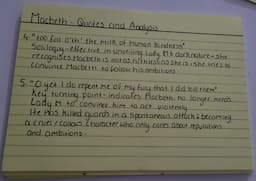 Macbeth - Quotes and Analysis
4. "too full o'th' the milk of human kindness"
Soliloquy - effective in unveiling Lady M's dark nature - she
recognises Macbeth is not as ruthless as she is, she tries to
convince Macbeth to follow his ambitions
5. "O yet I do repent me of my fury that I did kill them"
Key turning point - indicates Macbeth no longer needs
Lady M to convince him to act violently
He has killed guards in a spontaneous attack & becoming
a cruel callous character who only cares about reputation
and ambitions.